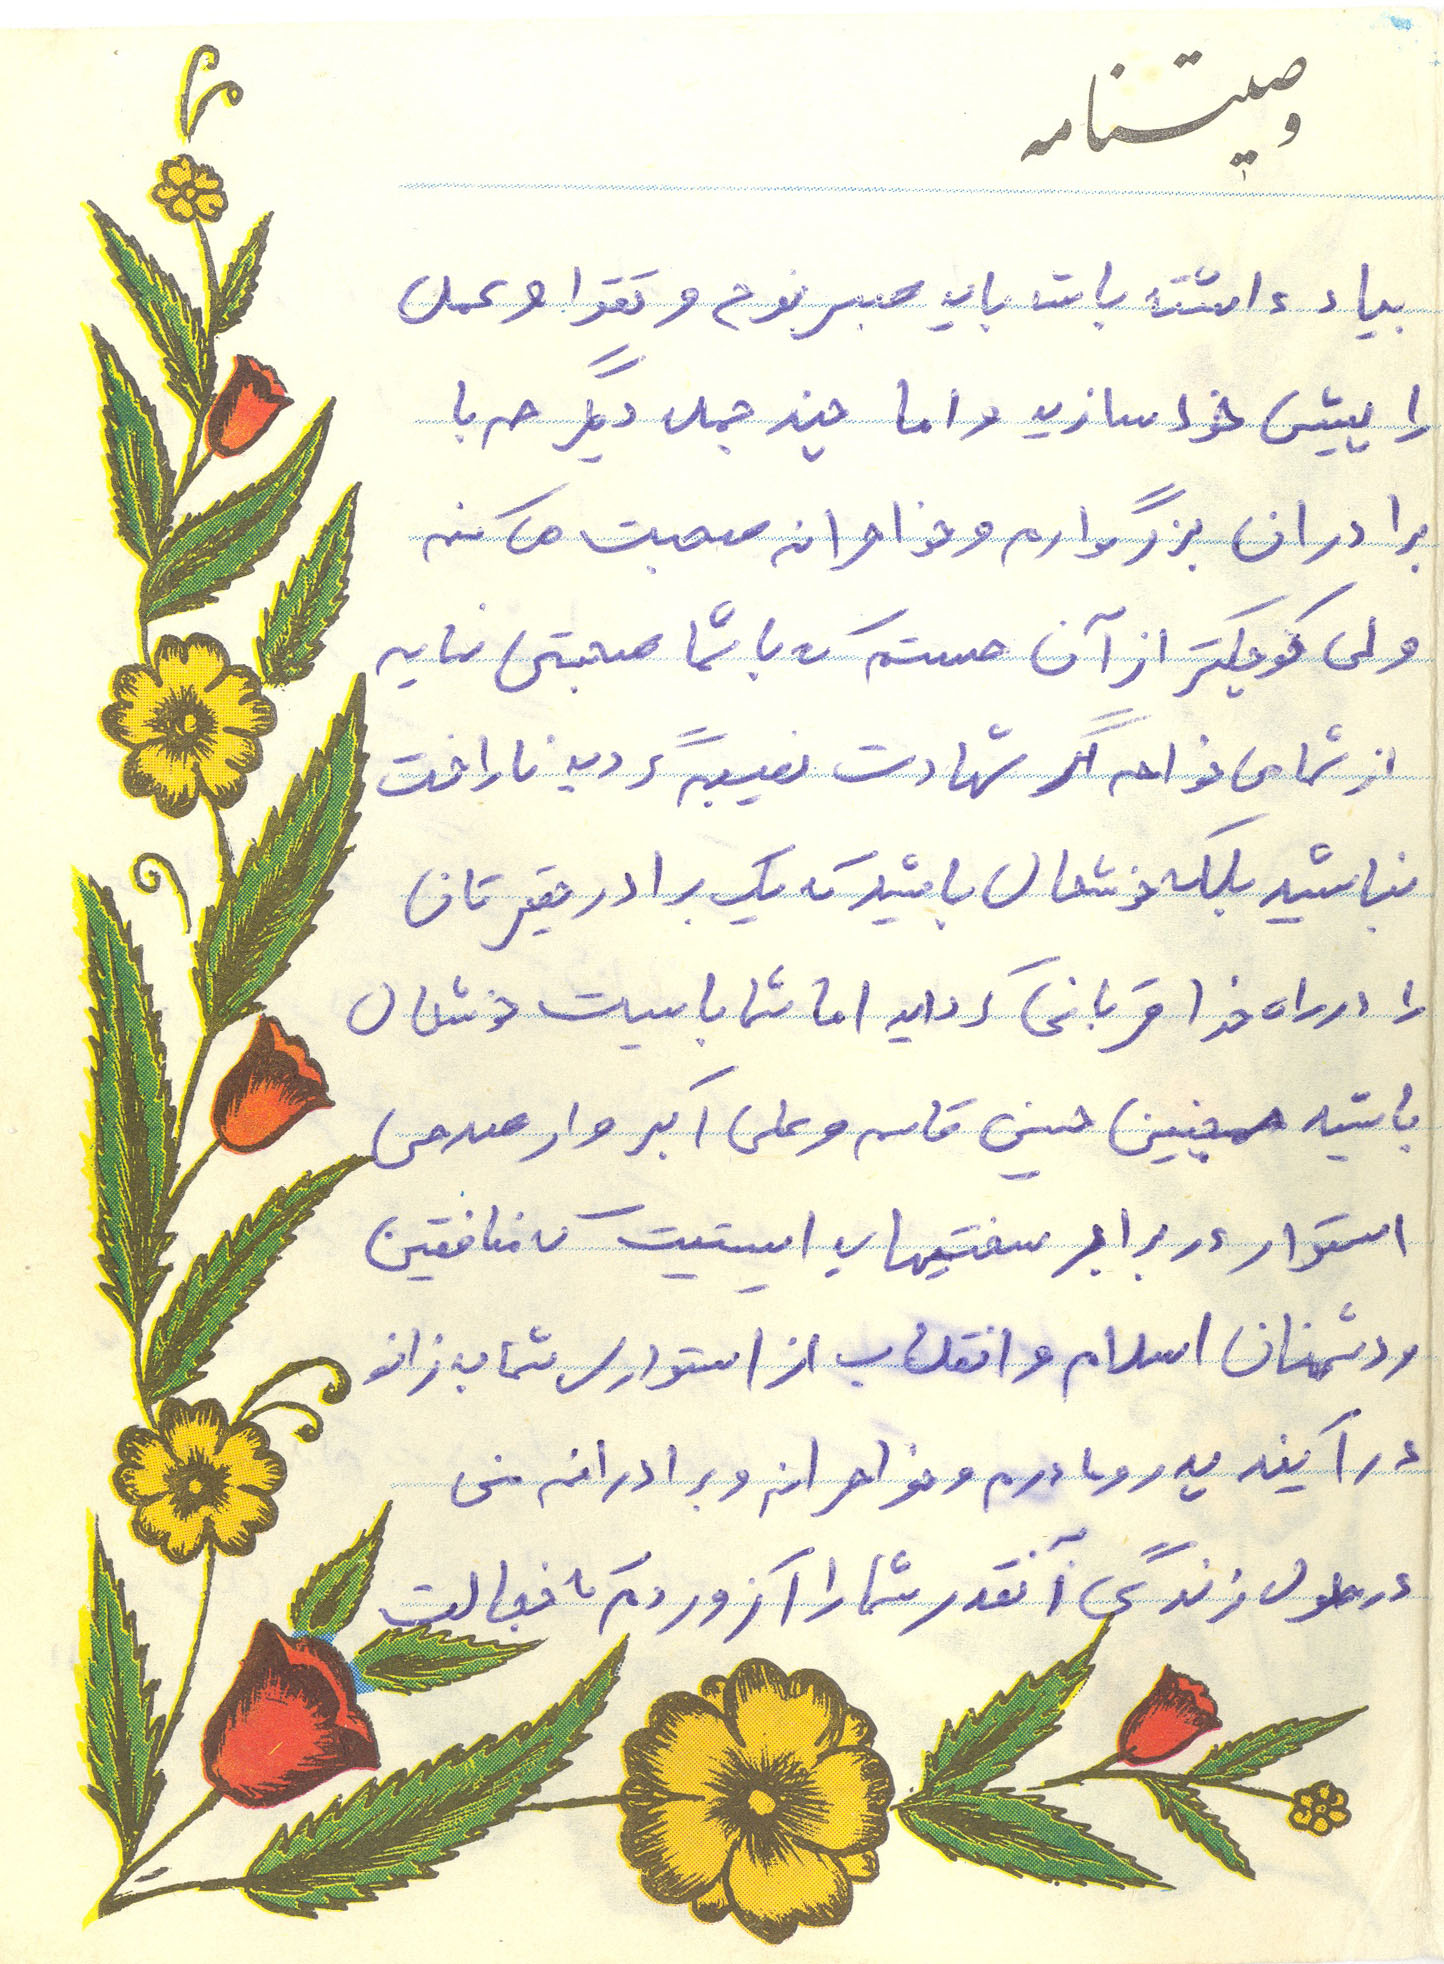 وصیتنامه
بیاد داشته باشد باید صبر نوح و تقوا و عمل
را پیش خود سازید و اما چند جمله دیگر که با
برادران بزرگوارم و خواهرانم صحبت می کنم
ولی کوچکتر از آن هستم که با شما صحبتی نمایم
از شما می خواهم اگر شهادت نصیبم گردید ناراحت
نباشید بلکه خوشحال باشید که یک برادر حقیرتان
را در راه خدا قربانی کرداید اما شما بایست خوشحال
باشید همچنین حسین قاسم و علی اکبر وار
استوار در برابر سختیهاید ایستیت که منافقین
ودشمنان اسلام و انقلاب از استواری شما به زانو
در آیند پدر و مادرم و خواهرانم و برادرانم من
در طول زندگی آنقدر شما را آزوردم که خجالت